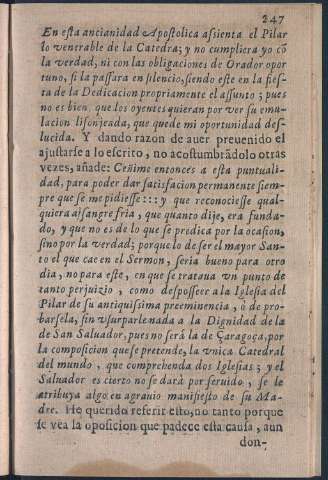 247
En esta ancianidad Apostolica assienta el Pilar
lo venerable de la Catedra; y no cumpliera yo cõ
la verdad, ni con las obligaciones de Orador opor
tuno, si la passara en silencio, siendo este en la fies-
ta de la Dedicacion propriamente el assunto; pues
no es bien, que los oyentes quieran por ver su emu-
lacion lisonjeada, que quede mi oportunidad des-
lucida. Y dando razon de auer preuenido el
ajustarse a lo escrito, no acostumbrãdolo otras
vezes, añade: Ceñime entonces a esta puntuali-
dad, para poder dar satisfacion permanente siem-
pre que se me pidiesse::: y que reconociesse qual-
quiera a i sangre fria, que quanto dije, era funda-
do, y que no es de lo que se predica por la ocasion,
sino por la verdad; porque lo de ser el mayor San-
to el que cae en el Sermon, seria bueno para otro
dia, no para este, en que se trataua vn punto de
tanto perjuizio, como despossèer a la Iglesia del
Pilar de su antiquissima preeminencia, ò de pro-
barsela, sin vsurparle nada a la Dignidad de la
de San Saluador, pues no será la de Çaragoça, por
la composicion que se pretende, la vnica Catedral
del mundo, que comprehenda dos Iglesias; y el
Saluador es cierto no se dará por seruido, se le
atribuya algo en agrauio manifiesto de su Ma-
dre. He querido referir esto, no tanto porque
se vea la oposicion que padece esta causa, aun
don-